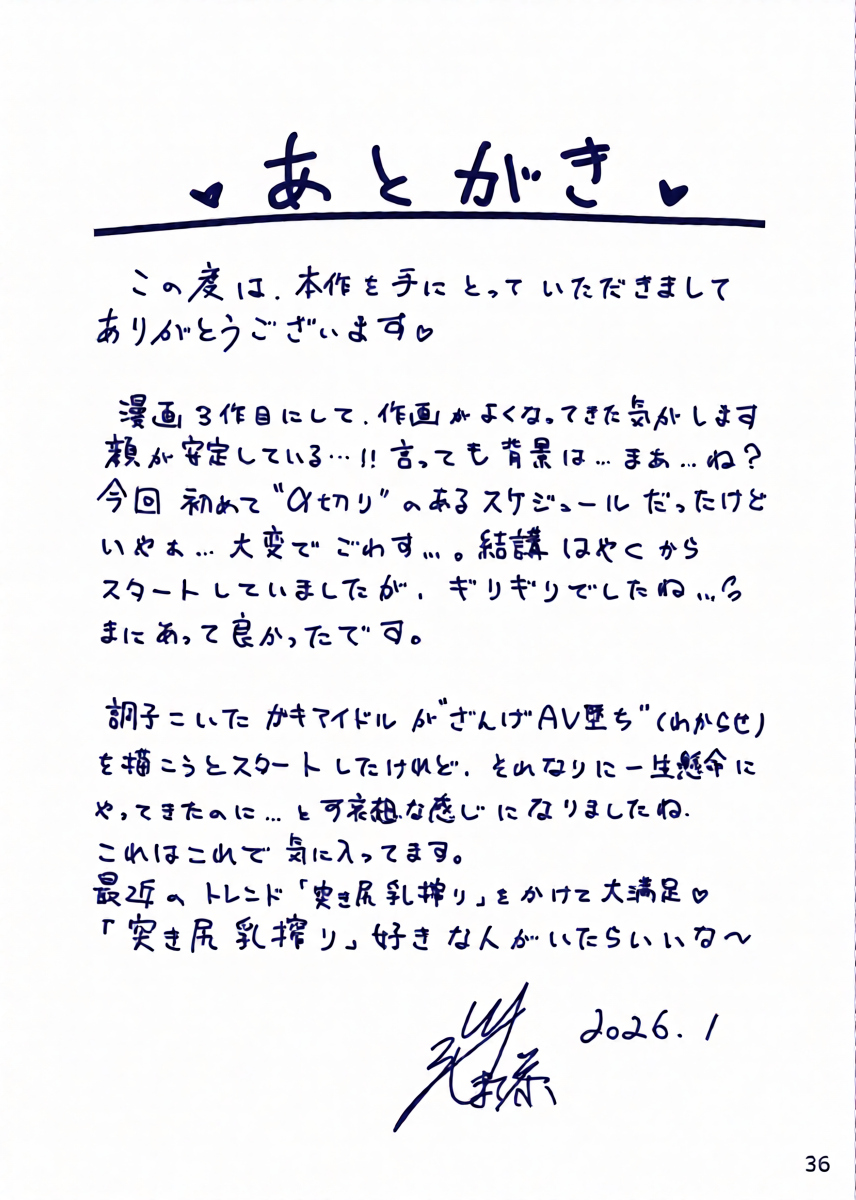 ♥ あとがき ♥
この度は、本作を手にとっていただきまして
ありがとうございます♡
漫画3作目にして、作画がよくなってきた気がします
顔が安定している…!! 言っても背景は…まぁ…ね?
今回 初めて“〆切り”のあるスケジュールだったけど
いやぁ…大変でごわす…。結講はやくから
スタートしていましたが、ギリギリでしたね…
まにあって良かったです。
調子こいたガキアイドルが“ざんげAV堕ち”(わからせ)
を描こうとスタートしたけれど、それなりに一生懸命に
やってきたのに…と可哀想な感じになりましたね.
これはこれで気に入ってます。
最近のトレンド「突き尻乳搾り」をかけて大満足♡
「突き尻乳搾り」好きな人がいたらいいな〜
2026.1
36